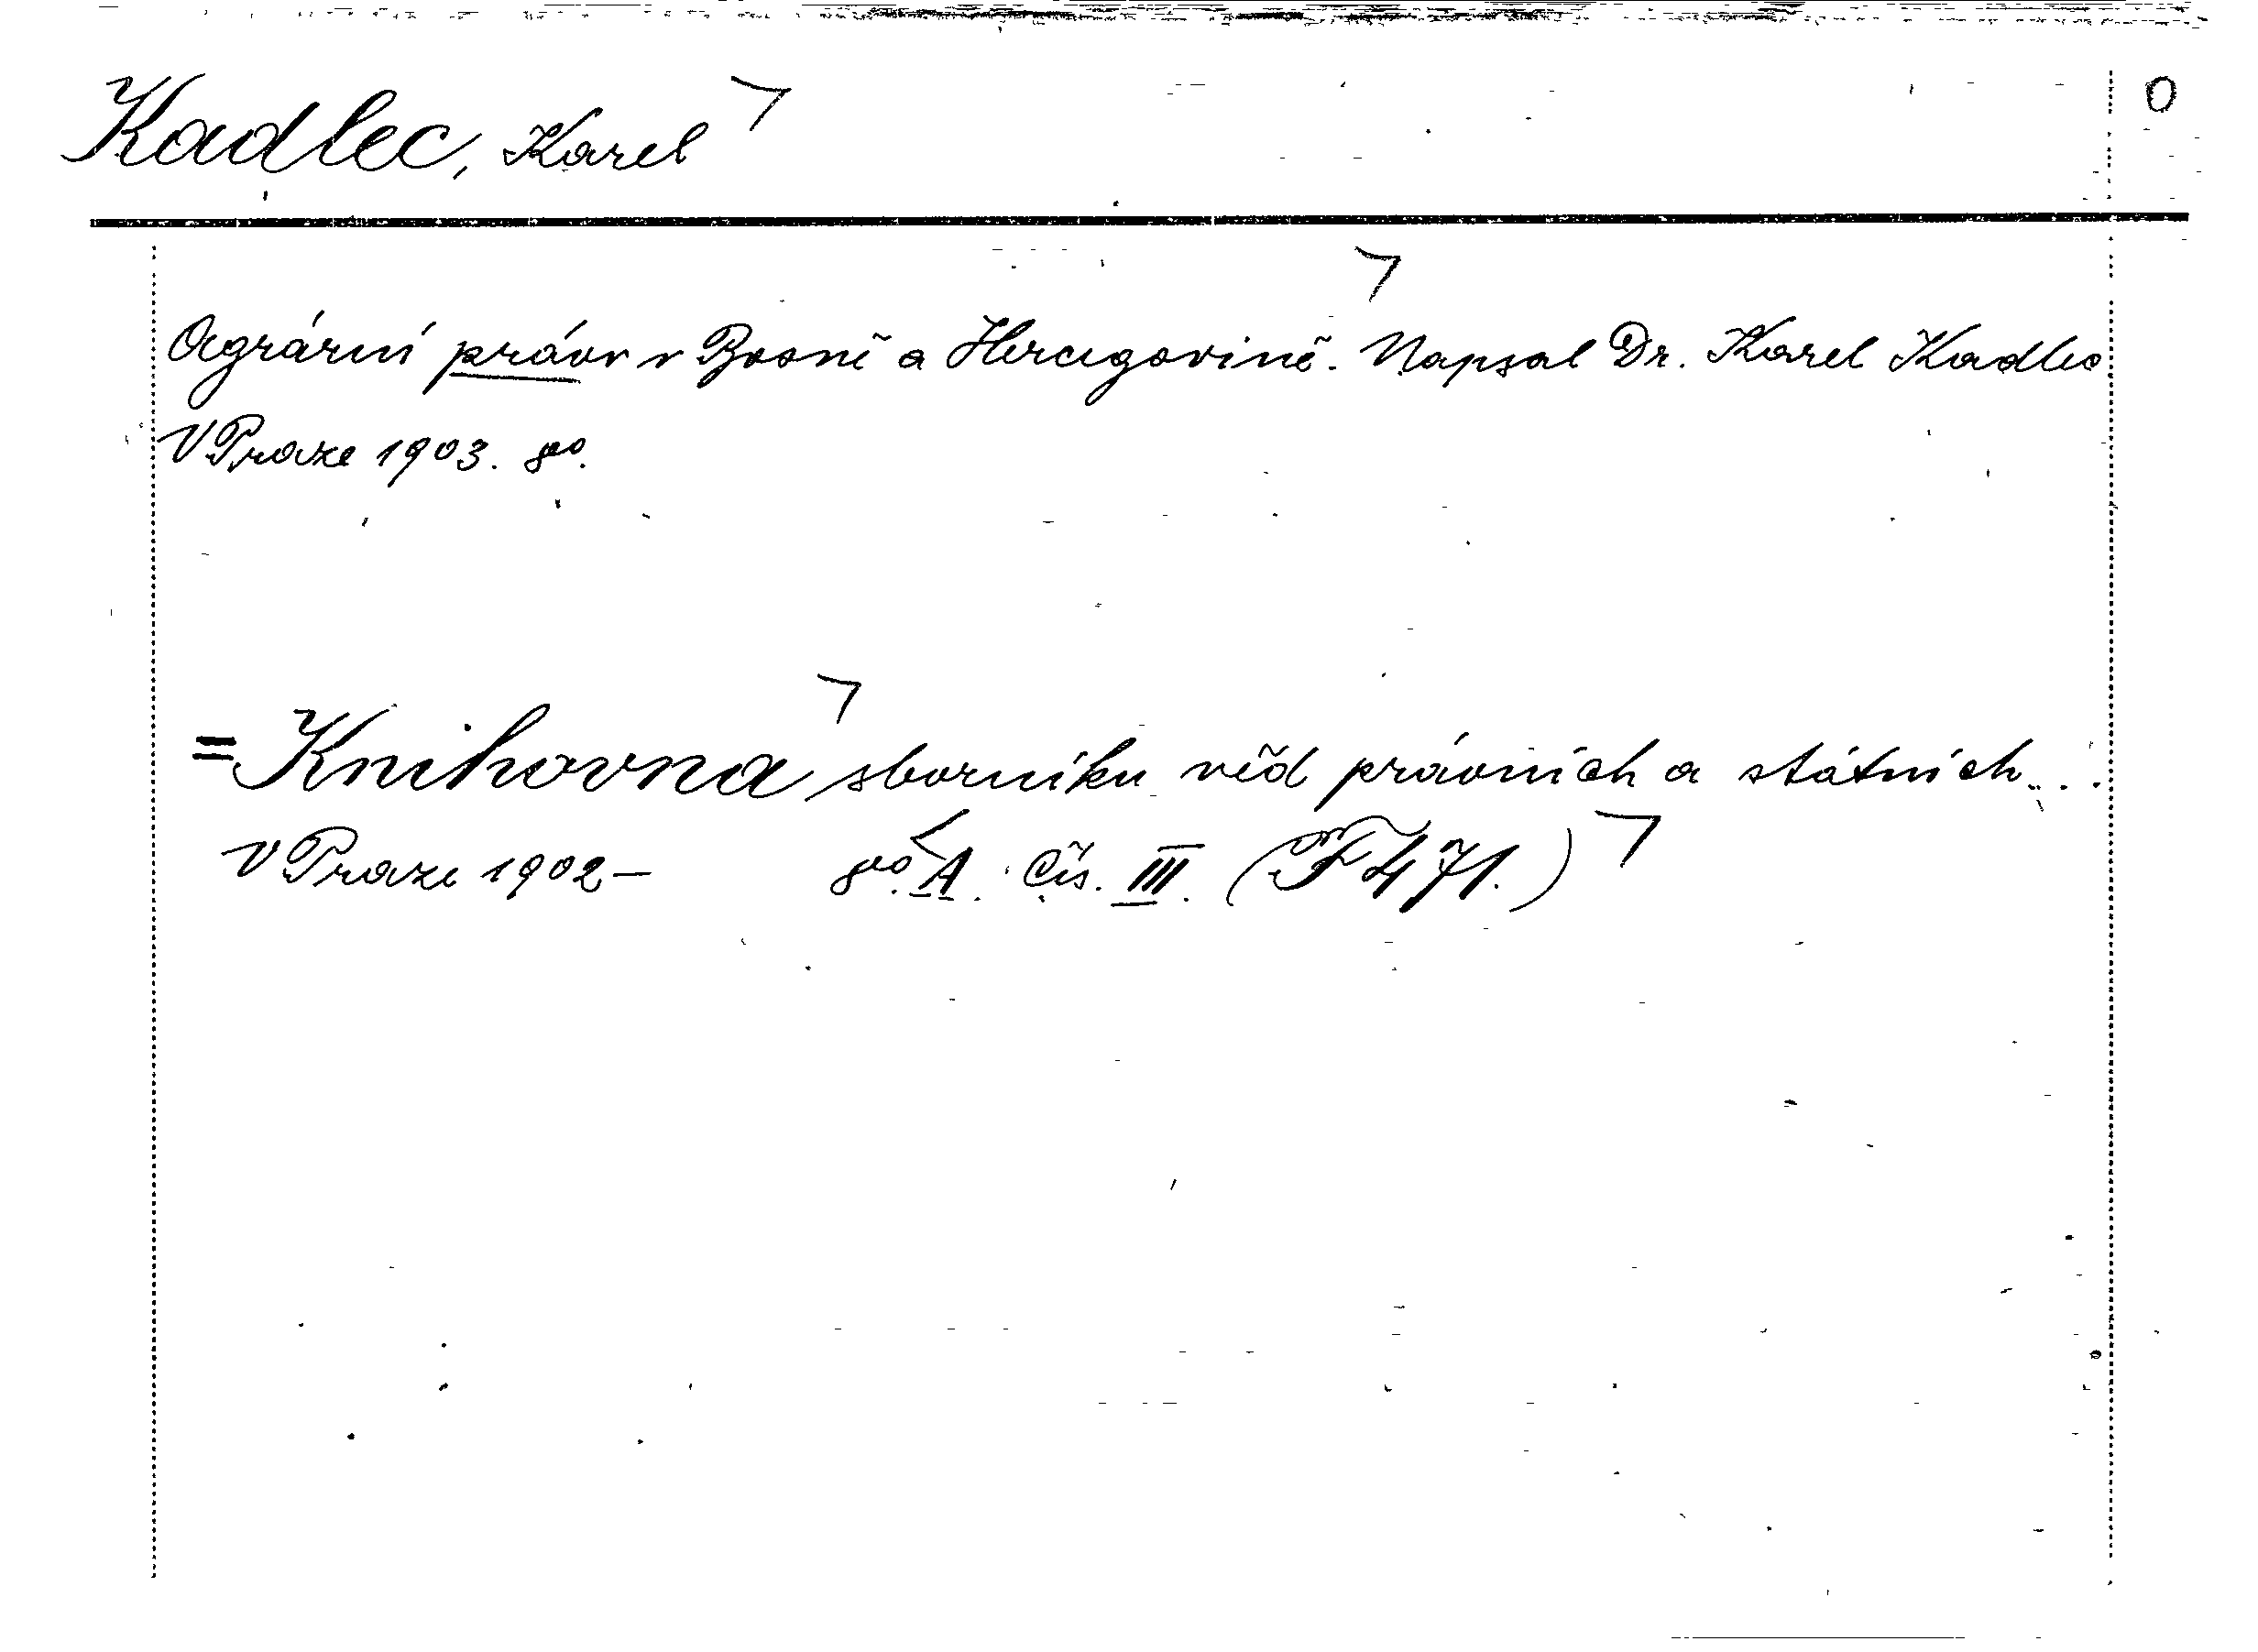 Kadlec, Karel ¬ 0
Agrární právo v Bosně a Hercegovině. ¬ Napsal Dr. Karel Kadlec
V Praze 1903. 8vo.
=Knihovna ¬ sborníku věd právních a státních...
V Praze 1902— 8vo. A. Čís. III. (F 471.) ¬